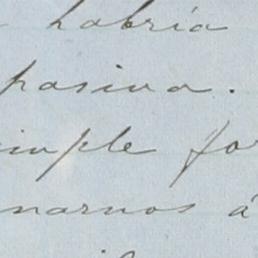 habría
pasiva.
imple for
narnos á